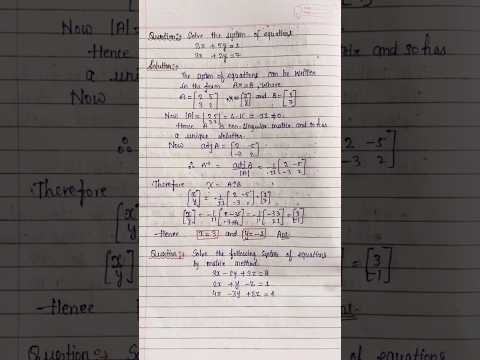 Question:- Solve the system of equations
2x + 5y = 1
3x + 2y = 7
Solution:-
The system of equations can be written
in the form AX = B, where
A = [2 5 3 2], X = [x y] and B = [1 7]
Now |A| = |2 5 3 2| = 4-15 = -11 ≠ 0.
Hence A is non-singular matrix and so has
a unique solution.
Now adj A = [2 -5 -3 2]
∴ A⁻¹ = adj A / |A| = 1/-11 [2 -5 -3 2]
Therefore X = A⁻¹B
[x y] = -1/11 [2 -5 -3 2] [1 7]
[x y] = -1/11 [2-35 -3+14] = -1/11 [-33 11] = [3 -1]
Hence x = 3 and y = -1 Ans
Question:- Solve the following system of equations
by matrix method.
3x - 2y + 3z = 8
2x + y - z = 1
4x - 3y + 2z = 4